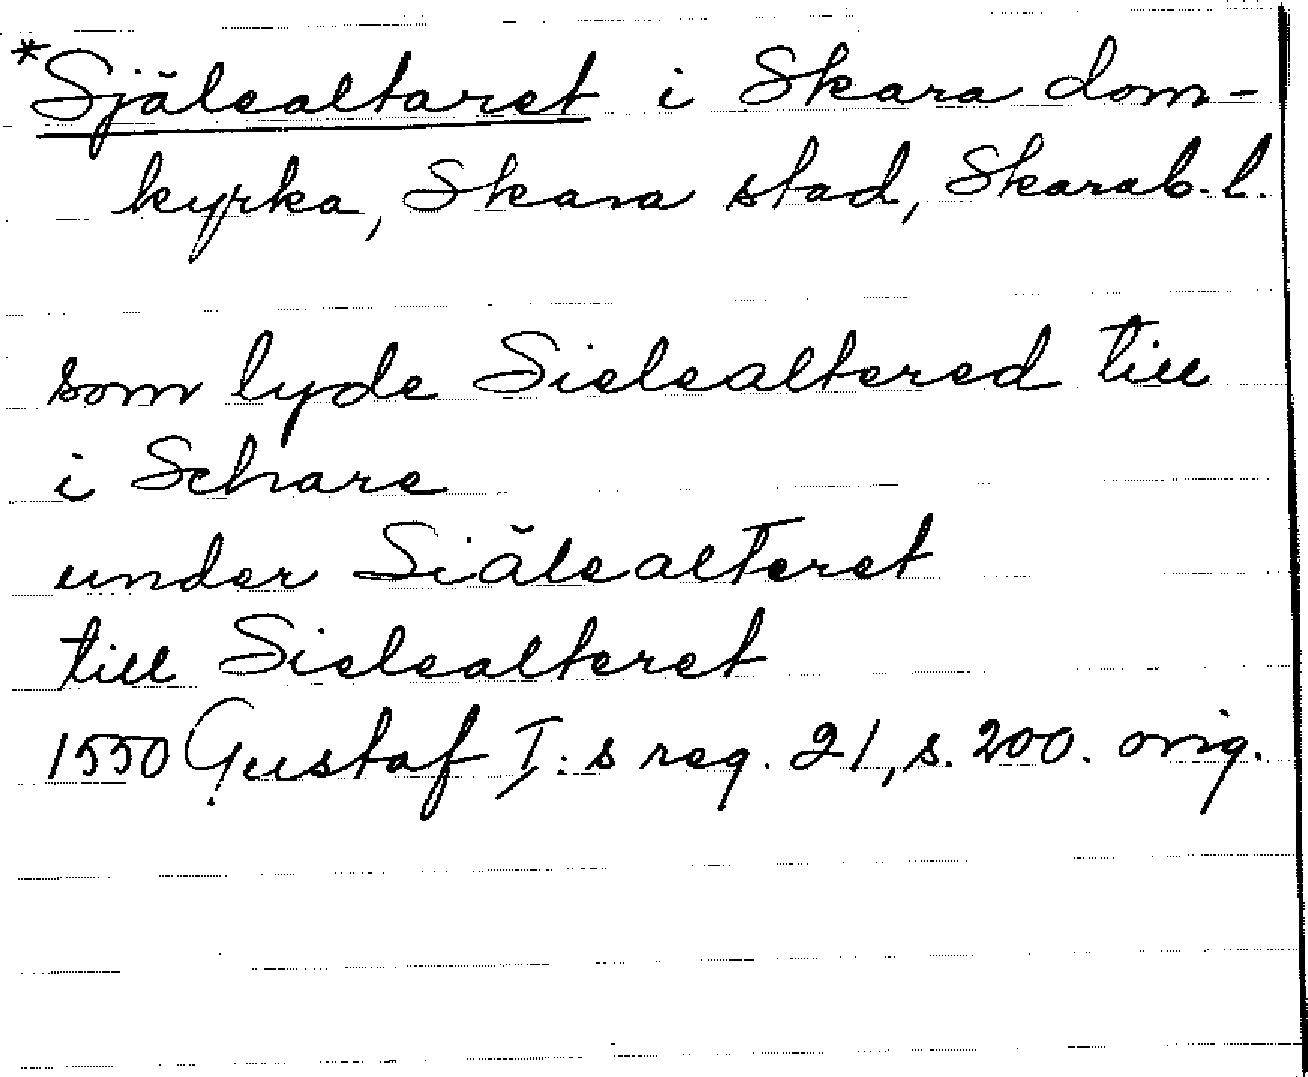 *Själealtaret i Skara dom-
kyrka, Skara stad, Skarab. l.
som lyde Sielealtered till
i Schare
under Siälealteret
till Sielealteret
1550 Gustaf I:s reg. 21, s. 200. orig.